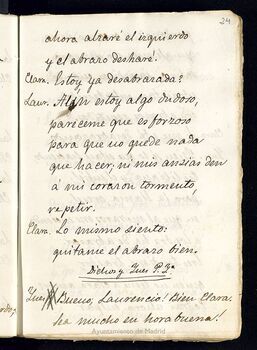 24
ahora alzaré el izquierdo
y el abrazo desharé.
Clara. Estoy ya desabrazada?
Laur. Aún estoy algo dudoso,
paréceme que es forzoso
para que no quede nada
que hacer, ni mis ansias den
á mi corazon tormento,
repetir.
Clara. Lo mismo siento:
quitame el abrazo bien.
Dichos y Ynes P. Yª
Ynes Bueno, Laurencio! Bien Clara.
Sea mucho en hora buena!
Ayuntamiento de Madrid